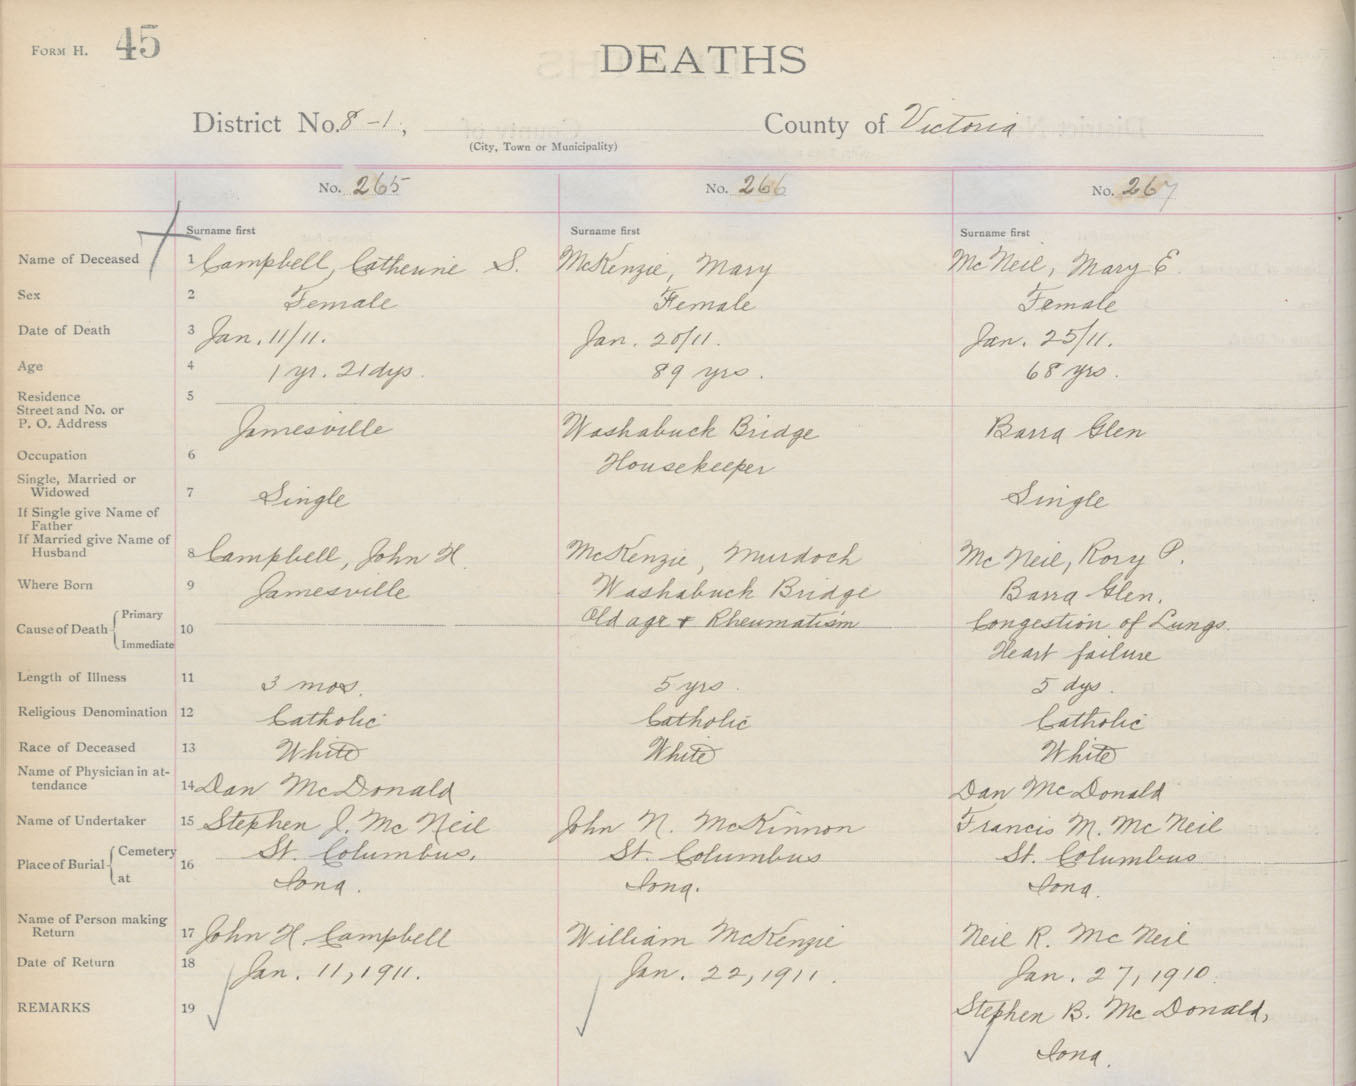 FORM H. 45
DEATHS
District No. 8-1, County of Victoria
(City, Town or Municipality)
No. 265 No. 266 No. 267
Surname first Surname first Surname first
Name of Deceased 1 Campbell, Catherine S. McKenzie, Mary McNeil, Mary E.
Sex 2 Female Female Female
Date of Death 3 Jan. 11/11. Jan. 20/11. Jan. 25/11.
Age 4 1 yr. 21dys. 89 yrs. 68 yrs.
Residence 5
Street and No. or
P. O. Address Jamesville Washabuck Bridge Barra Glen
Occupation 6 Housekeeper
Single, Married or
Widowed 7 Single Single
If Single give Name of
Father
If Married give Name of
Husband 8 Campbell, John H. McKenzie, Murdoch McNeil, Rory P.
Where Born 9 Jamesville Washabuck Bridge Barra Glen.
Cause of Death Primary 10 Old age & Rheumatism Congestion of Lungs.
Immediate Heart failure
Length of Illness 11 3 mos. 5 yrs. 5 dys.
Religious Denomination 12 Catholic Catholic Catholic
Race of Deceased 13 White White White
Name of Physician in at-
tendance 14 Dan McDonald Dan McDonald
Name of Undertaker 15 Stephen J. McNeil John N. McKinnon Francis M. McNeil
Place of Burial Cemetery 16 St. Columbus, St. Columbus St. Columbus
at Iona. Iona. Iona.
Name of Person making
Return 17 John H. Campbell William McKenzie Neil R. McNeil
Date of Return 18 Jan. 11, 1911. Jan. 22, 1911. Jan. 27, 1910.
REMARKS 19 Stephen B. McDonald,
Iona.